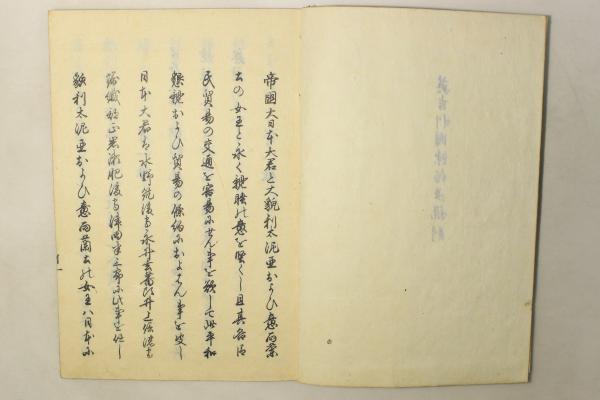 帝國大日本大君と大貌利太泥亜および意而蘭
土の女王と永く親睦の意を堅くし且其各臣
民貿易の交通を容易にせん事を欲して此平和
懇親および貿易の條約におよはん事を決し
日本大君は水野筑後守永井玄蕃頭井上信濃守
堀織部正岩瀬肥後守津田半三郎に此事を任し
貌利太泥亜および意而蘭土の女王ハ日本に